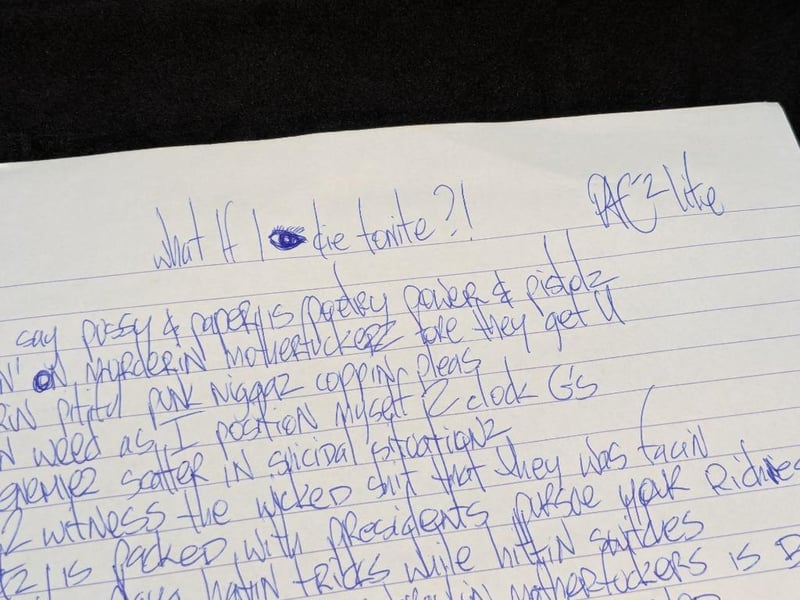 What If I die tonite?!
say pussy & paper is poetry power & pistolz
N' ON murderin motherfuckerz fore they get U
RIN pitiful punk niggaz coppin pleas
N weed as I position myself 2 clock G's
enemiez scatter IN suicidal situationz
2 witness the wicked shit that they was facin
is packed with presidents pursue your Riches
hatin tricks while hittin switches
motherfuckers is